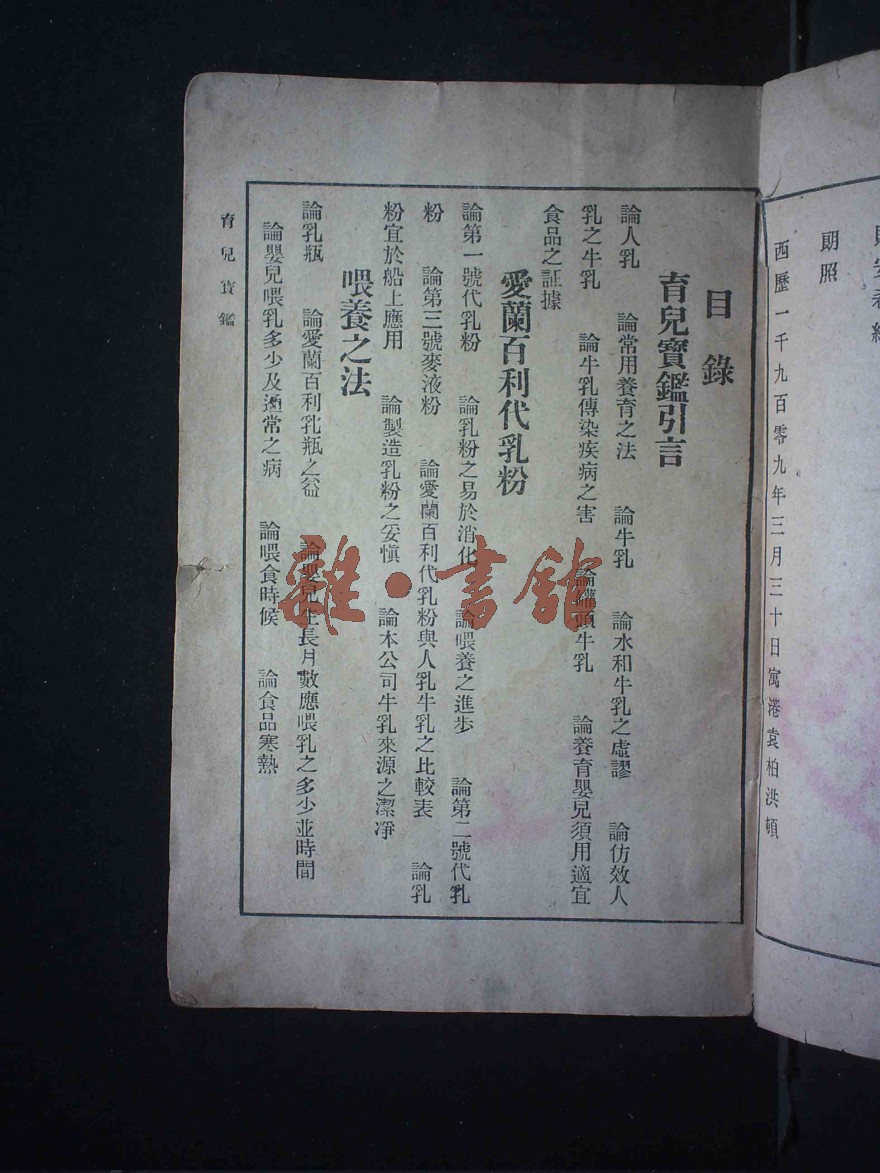 朗照
西歷一千九百零九年三月三十日寓港袁柏洪頓
目錄
育兒寶鑑引言
論人乳　論常用養育之法　論牛乳　論水和牛乳之虛謬　論仿效人
乳之牛乳　論牛乳傳染疾病之害　論罐頭牛乳　論養育嬰兒須用適宜
食品之証據
愛蘭百利代乳粉
論第一號代乳粉　論乳粉之易於消化　論喂養之進步　論第二號代乳
粉　論第三號麥液粉　論愛蘭百利代乳粉與人乳牛乳之比較表　論乳
粉宜於船上應用　論製造乳粉之妥慎　論本公司牛乳來源之潔凈
喂養之法
論乳瓶　論愛蘭百利乳瓶之益　論嬰兒生長月數應喂乳之多少並時間
論嬰兒喂乳多少及通常之病　論喂食時候　論食品寒熱
育兒寶鑑
雜·書館